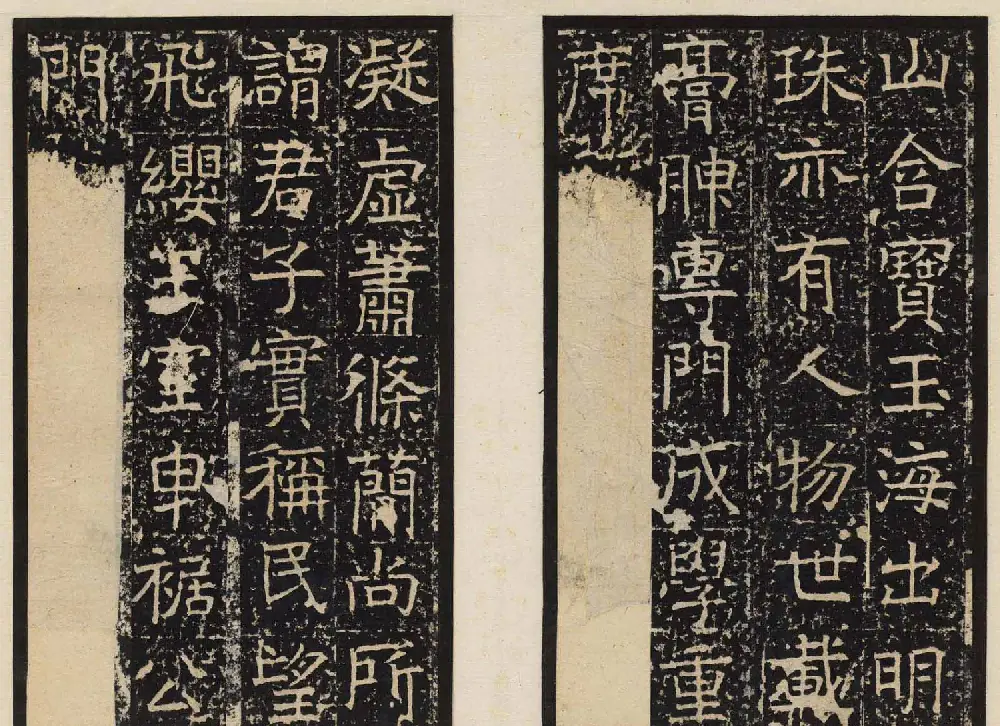 山含寶玉海出明
珠亦有人物世載
膏腴專門成學重
席
凝虛蕭條蘭尚所
謂君子實稱民望
飛纓 室申裾公
門